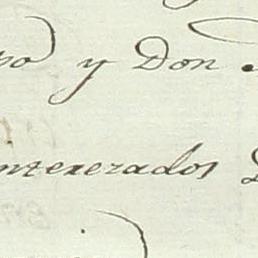 po y Don
nterezados